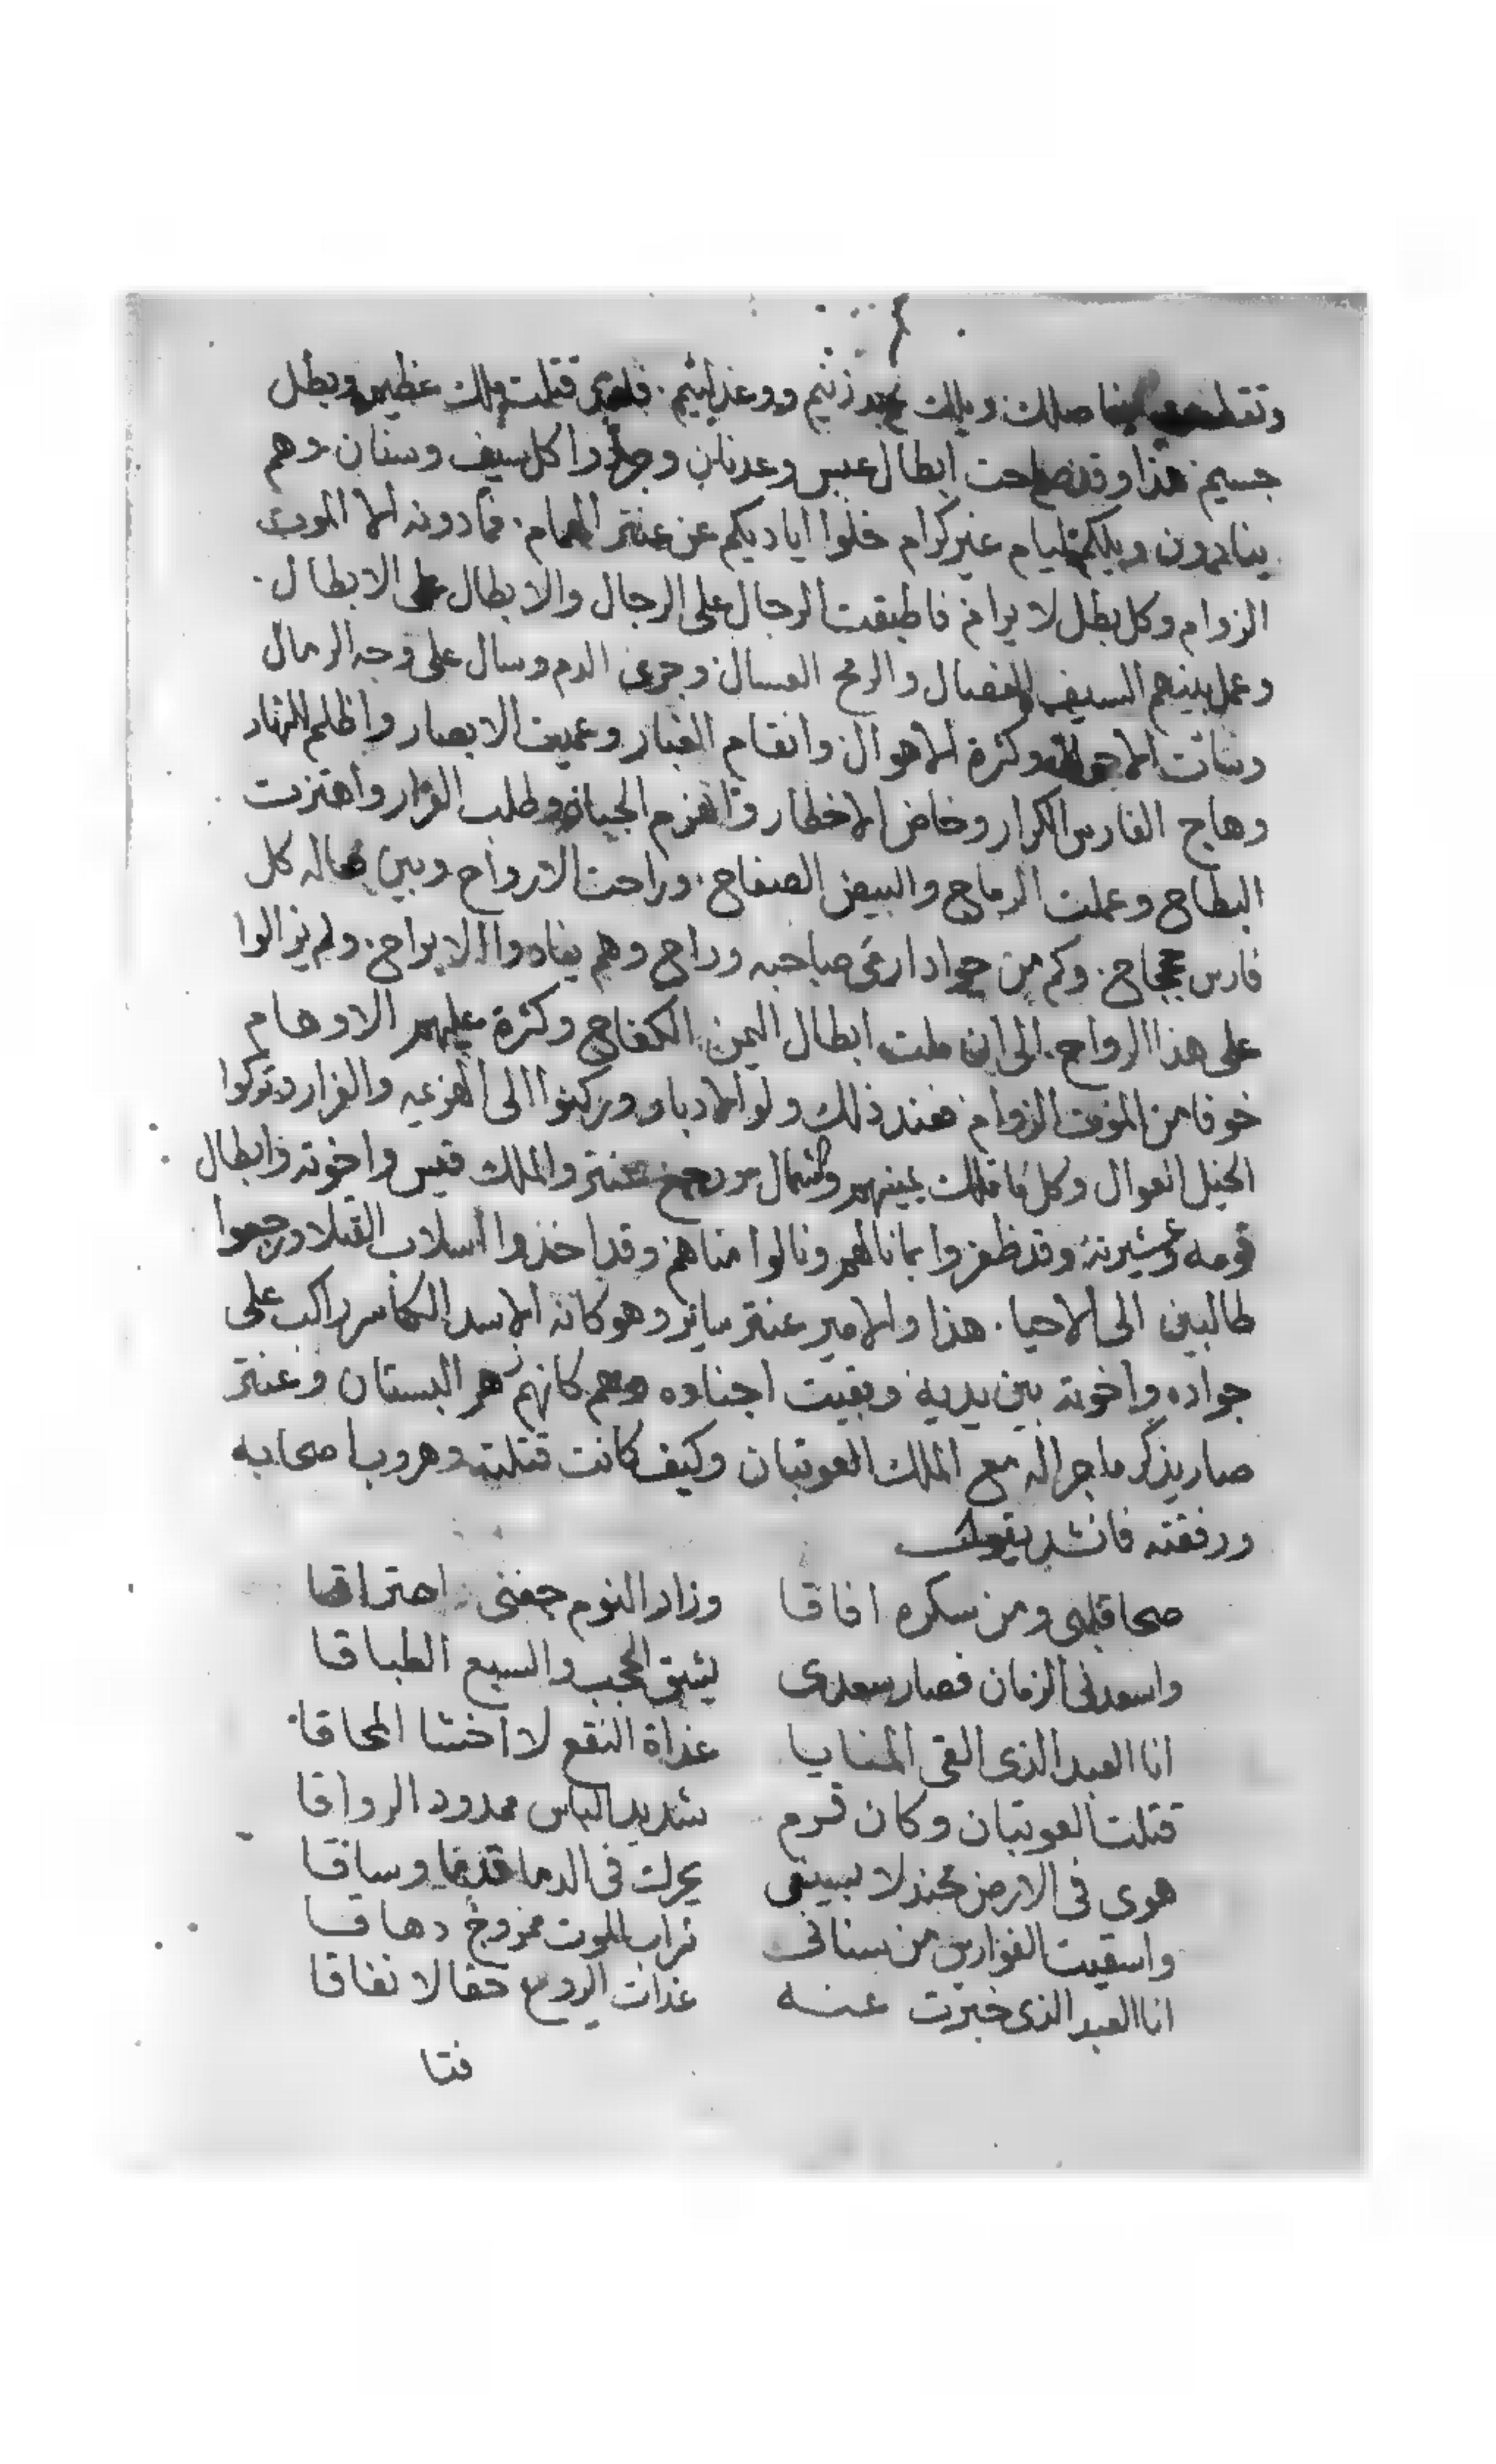 مفاصلك ويلك عبد زنيم ووغد ليثيم . فلمن قتلت ملك عظيم وبطل
جسيم هذا وقد صاحت ابطال عبس وعدنان وجردوا كل سيف وسنان وهم
ينادون ويلكم ليام غير كرام خلوا اياديكم عن عنتر الهمام . فما دونه الا الموت
الزوام وكل بطل لا يرام فاطبقت الرجال على الرجال والابطال على الابطال .
وعمل بينهم السيف الفصال والرمح العسال وجرى الدم وسال على وجه الرمال
وكثرة الاهوال وانقام الغبار وعميت الابصار واظلم النهار
وهاج الفارس الكرار وخاض الاخطار وانهزم الجبان وطلب الفرار واهتزت
البطاح وعملت الرماح والبيض الصفاح . وراحت الارواح وبين كل
فارس جحجاح . وكم من جواد ارمى صاحبه وراح وهم ينادوا لا براح . ولم يزالوا
على هذا الرواح . الى ان ملت ابطال اليمن الكفاح وكثرة عليهم الاوهام
خوفا من الموت الزوام فعند ذلك ولوا الادبار وركنوا الى الهزيمه والفرار وتركوا
الخيل العوال وكل ما ملك يمينهم وشمال ورجع عنتر والملك قيس واخوته وابطال
قومه وعشيرته وقد ظفروا بمانالهم ونالوا مناهم وقد اخذوا اسلاب القتلا ورجعوا
طالبين الى الاحيا . هذا والامير عنتر ساير وهو كانه الاسد الكاسر راكب على
جواده واخوته بين يديه وبقيت اجناده وهم كانهم زهر البستان وعنتر
صار يذكر ما جرا له مع الملك العوتبان وكيف كانت قتلته وهروب اصحابه
ورفقته فانشد يقول
صحا قلبى ومن سكره افاقا وزاد النوم جفنى احتراقا
واسعدنى الزمان فصار سعدى يشق الحجب والسبع الطباقا
انا العبد الذى القى المنايا غداة النقع لا اخشا المحاقا
قتلت العوتبان وكان قرم شديد الباس ممدود الرواقا
هوى فى الارض مجندلا بسيفى يحرك فى الدما قدما وساقا
واسقيت الفوارس من سنانى شراب الموت ممزوج دهاقا
انا العبد الذى خبرت عنه غدات الروع حقا لا نفاقا
فتا